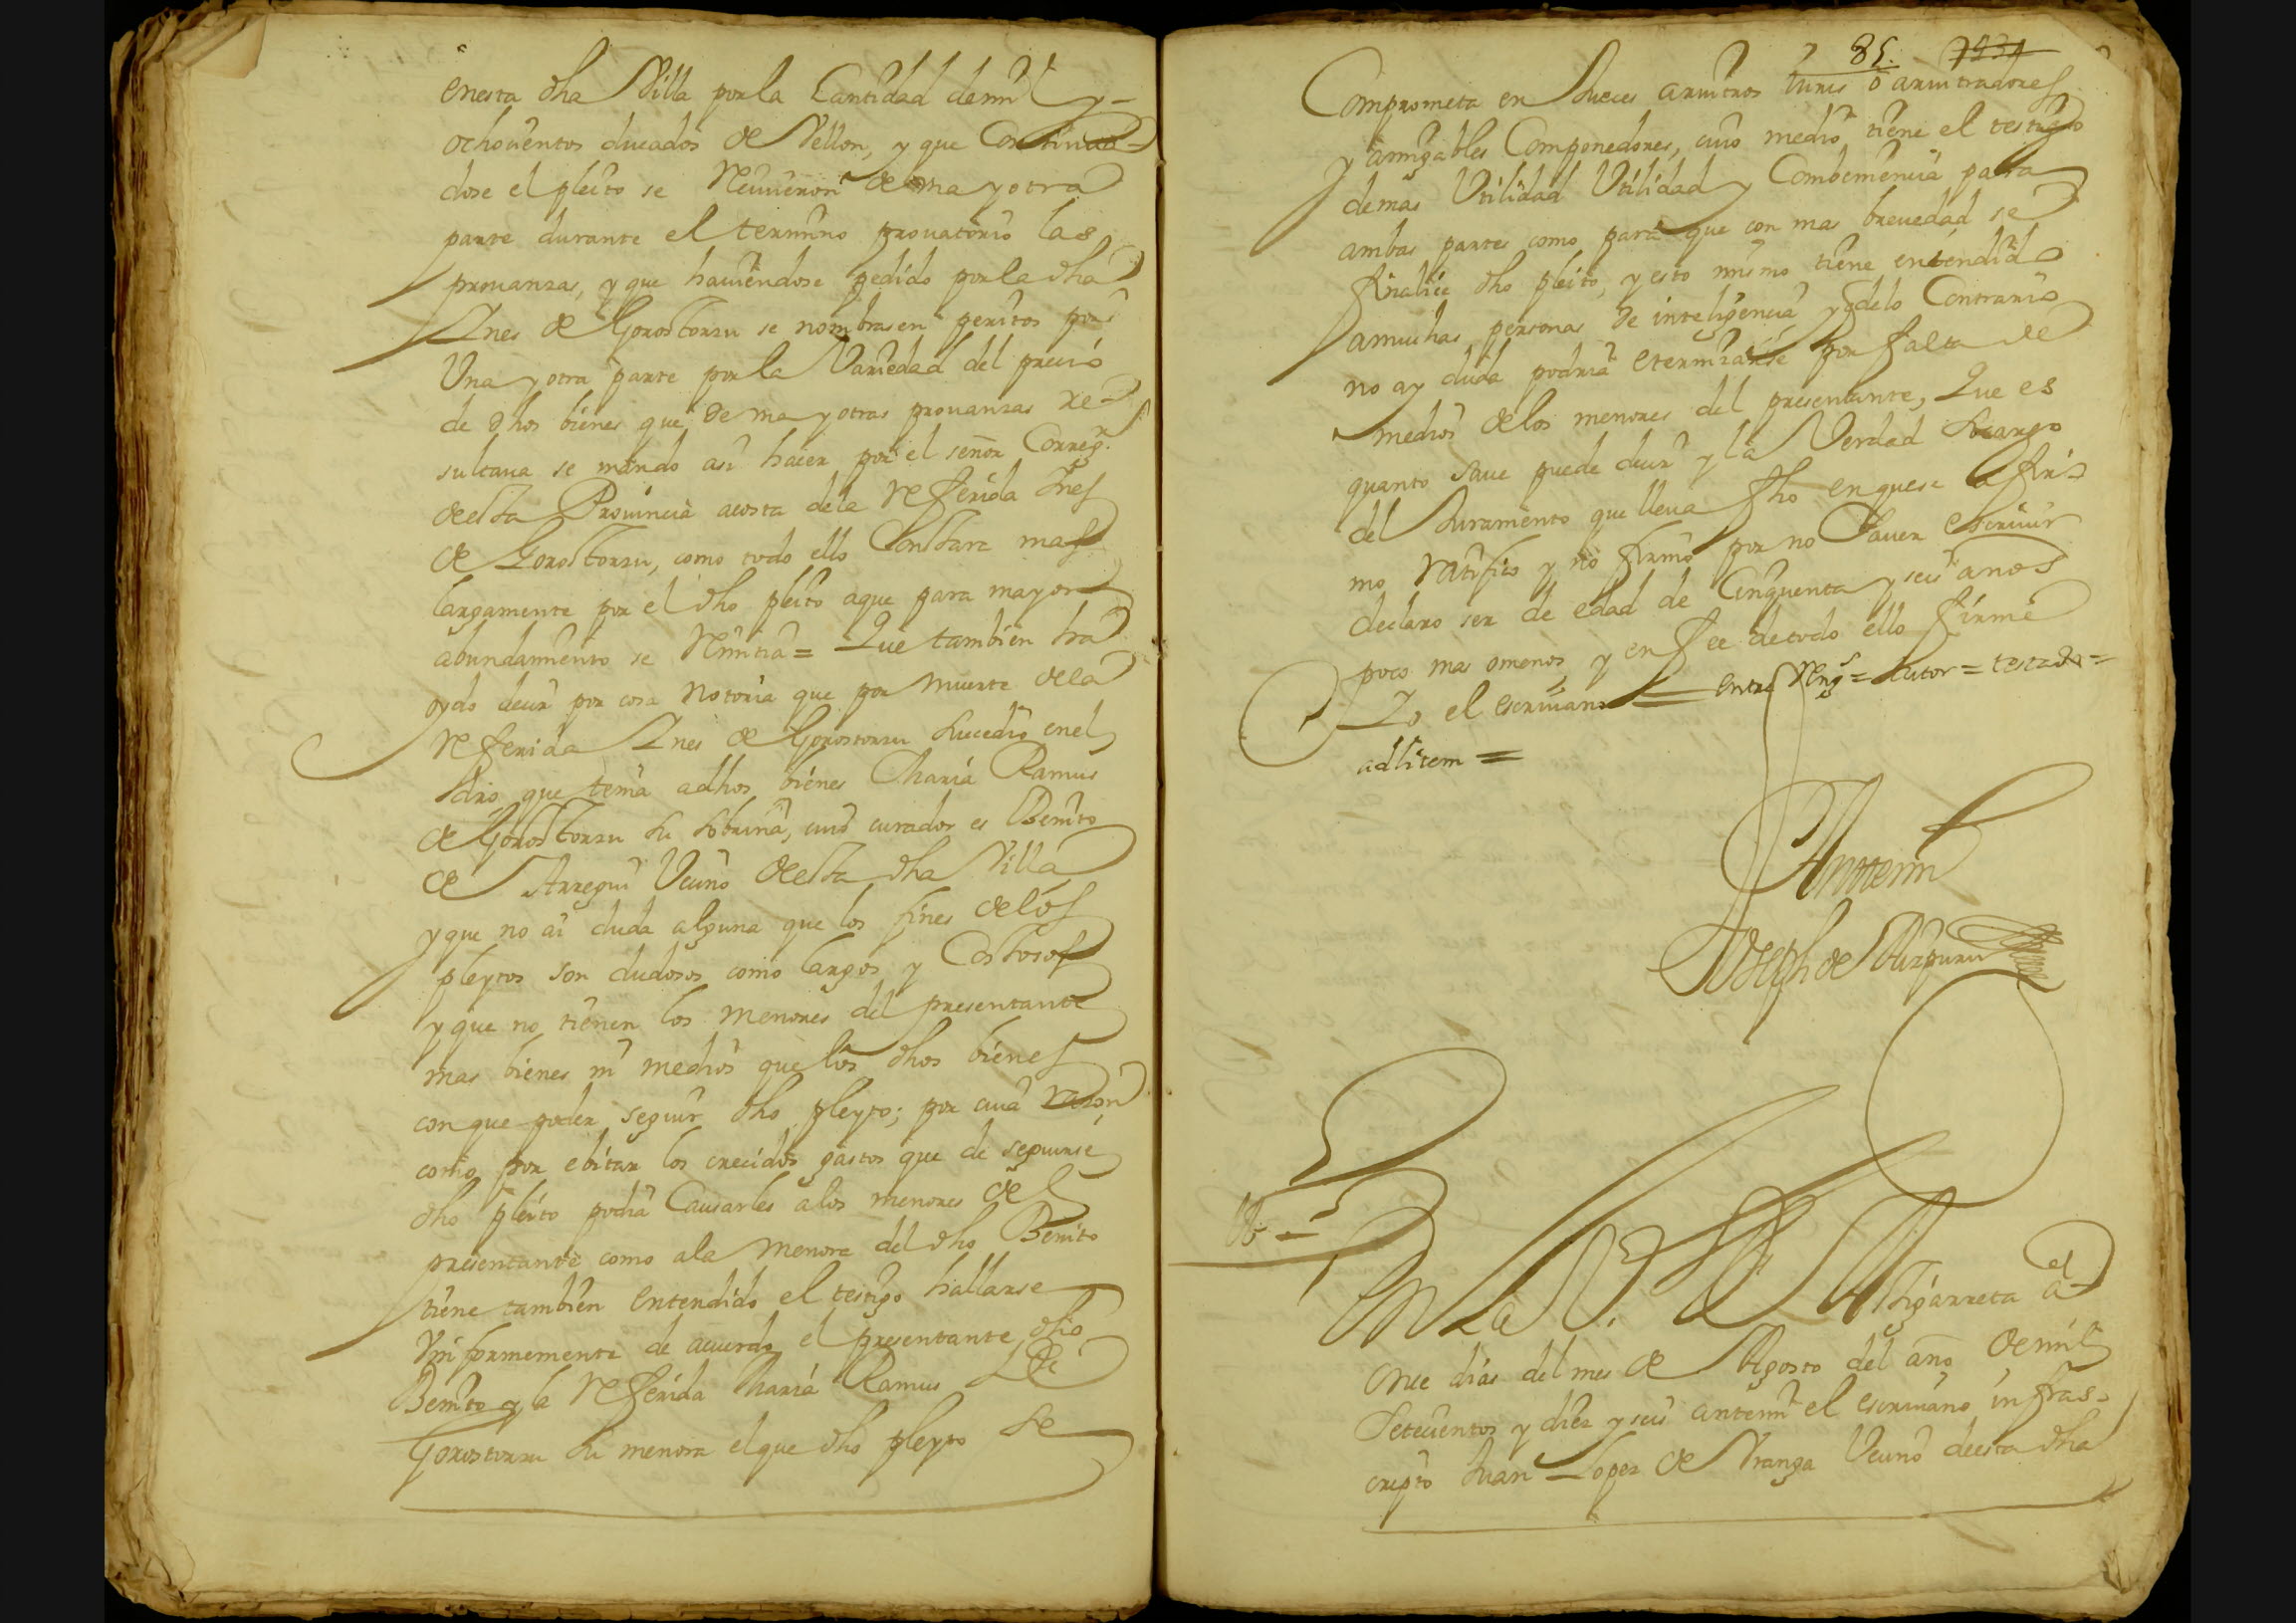 enesta dha Villa por la Cantidad de mil y-
ochocientos ducados de Vellon, y que Continuan-
dose el pleito se Reciuieron de una y otra
parte durante el termino prouatorio las
prouanzas, y que hauiendose pedido por la dha
Ynes de Gorostorzu se nombrasen peritos por
Una y otra parte por la Variedad del precio
de dhos bienes que de una y otras prouanzas re-
sultaua se mando asi hacer por el señor Correg.r
de esta Prouincia acosta dela Referida Ynes
de Gorostorzu, como todo ello Constara mas
largamente por el dho pleito aque para mayor
abundamiento se Remitia = Que tambien ha
oydo decir por cosa Notoria que por muerte dela
referida Ynes de Gorostorzu Sucedio enel
dro que tenia adhos bienes Maria Ramus
de Gorostorzu su sobrina, cuio curador es Benito
de Arregui Vecino de esta dha Villa
y que no ai duda alguna que los fines de los
pleytos son dudosos como largos y Costosos
y que no tienen los menores del presentante
mas bienes ni medios que los dhos bienes
con que poder seguir dho pleyto; por cuia razon
como por ebitar los crecidos gastos que de seguirse
dho pleito podia Causarles alos menores del
presentante como ala menora del dho Benito
tiene tambien entendido el testigo hallarse
Vniformemente de acuerdo el presentante dho
Benito y la Referida Maria Ramus de
Gorostorzu su menora el que dho pleyto se
85. 
Comprometa en Jueces aruitros Juris o aruitradores
y amigables Componedores, cuio medio tiene el testigo
demas Utilidad Utilidad y Combeniencia para
ambas partes como para que con mas breuedad se
finalice dho pleito, y esto mismo tiene entendido
amuchas personas de inteligencia y de lo Contrario
no ay duda podria eternizarse por falta de
medios de los menores del presentante, Que es
quanto saue puede decir y la Verdad so cargo
del Juramento que lleua fho en que se afir-
mo ratifico y no firmo por no Sauer escriuir
declaro ser de edad de Cinquenta y seis años
poco mas omenos, y en fee de todo ello firme
Yo el escriuano = entre Reng.s = Autor = testado =
adlitem =
Antemi
Joseph de Aizpuru
En La Villa de Elgarreta a
el
once dias del mes de Agosto del año de mil
Setecientos y diez y seis antemi el escriuano infras-
cripto Juan Lopez de Vranga Vecino de esta dha